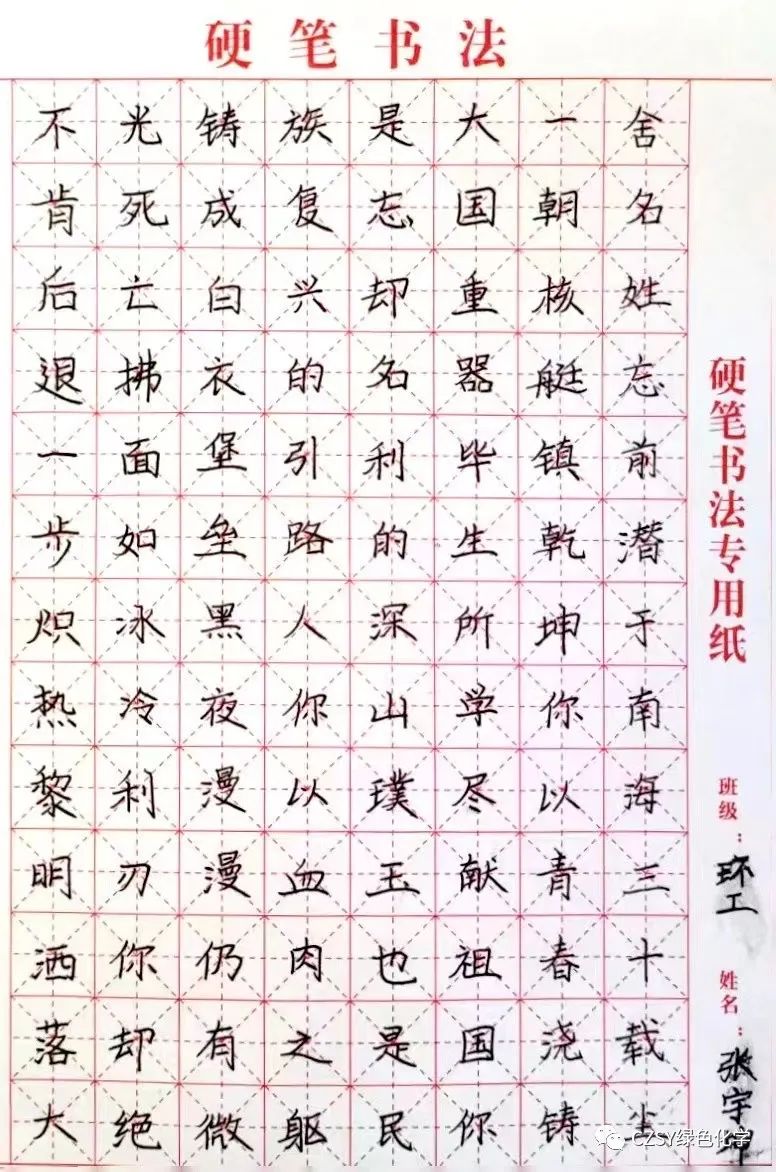 硬笔书法
舍名姓忘前潜于南海三十载
一朝核艇镇乾坤你以青春浇铸
大国重器毕生所学尽献祖国你
是忘却名利的深山璞玉也是民
族复兴的引路人你以血肉之躯
铸成白衣堡垒黑夜漫漫仍有微
光死亡拂面如冰冷利刃你却绝
不肯后退一步炽热黎明洒落大
硬笔书法专用纸
班级：环工
姓名：张宇
CZSY绿色化学